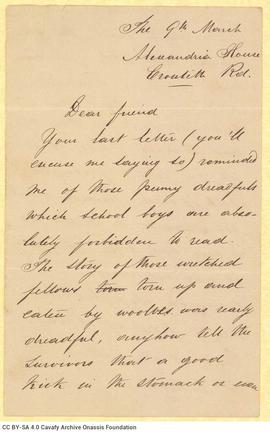 The 9th March
Alexandria House
Croxteth Rd.
Dear friend
Your last letter (you'll
excuse me saying so) reminded
me of those penny dreadfuls
which school boys are abso-
lutely forbidden to read.
The story of those wretched
fellows torn torn up and
eaten by woolves was really
dreadful, anyhow tell the
survivors that a good
kick in the stomach or even
CC BY-SA 4.0 Cavafy Archive Onassis Foundation